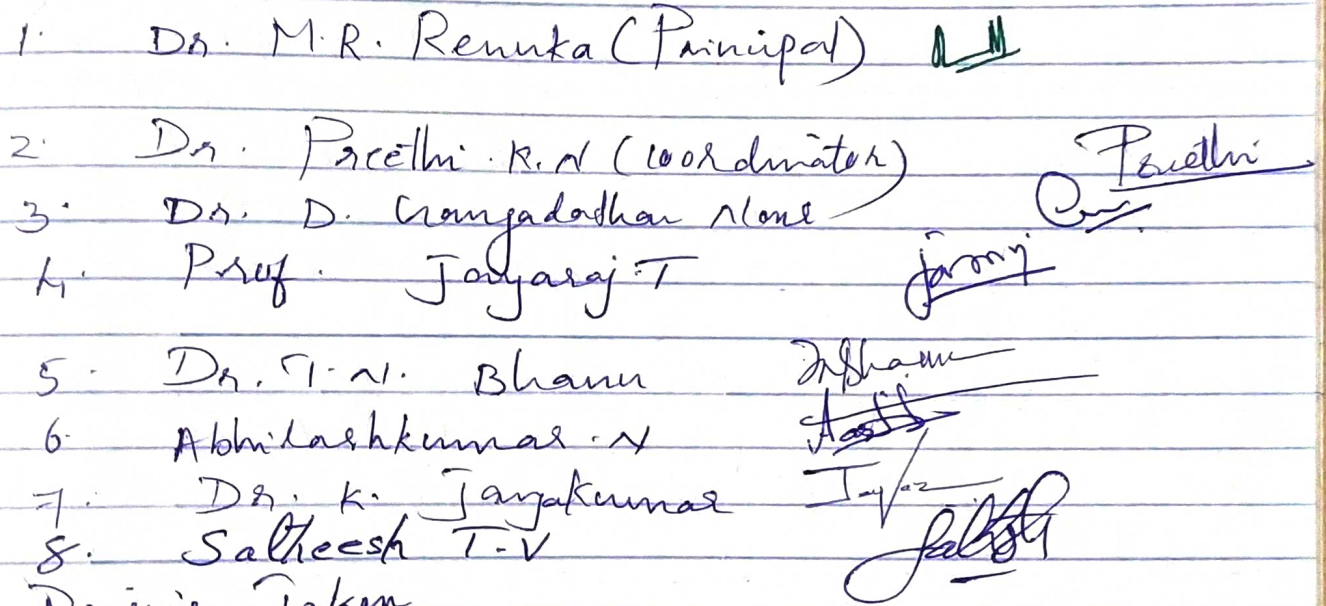 1. Dr. M.R. Renuka (Principal)
2. Dr. Preethi K.N (Coordinator) Preethi
3. Dr. D. Gangadadhar
4. Prof. Jayaraj T
5. Dr. T.N. Bhanu
6. Abhilashkumar. N
7. Dr. K. Jayakumar
8. Satheesh T.V
Taken